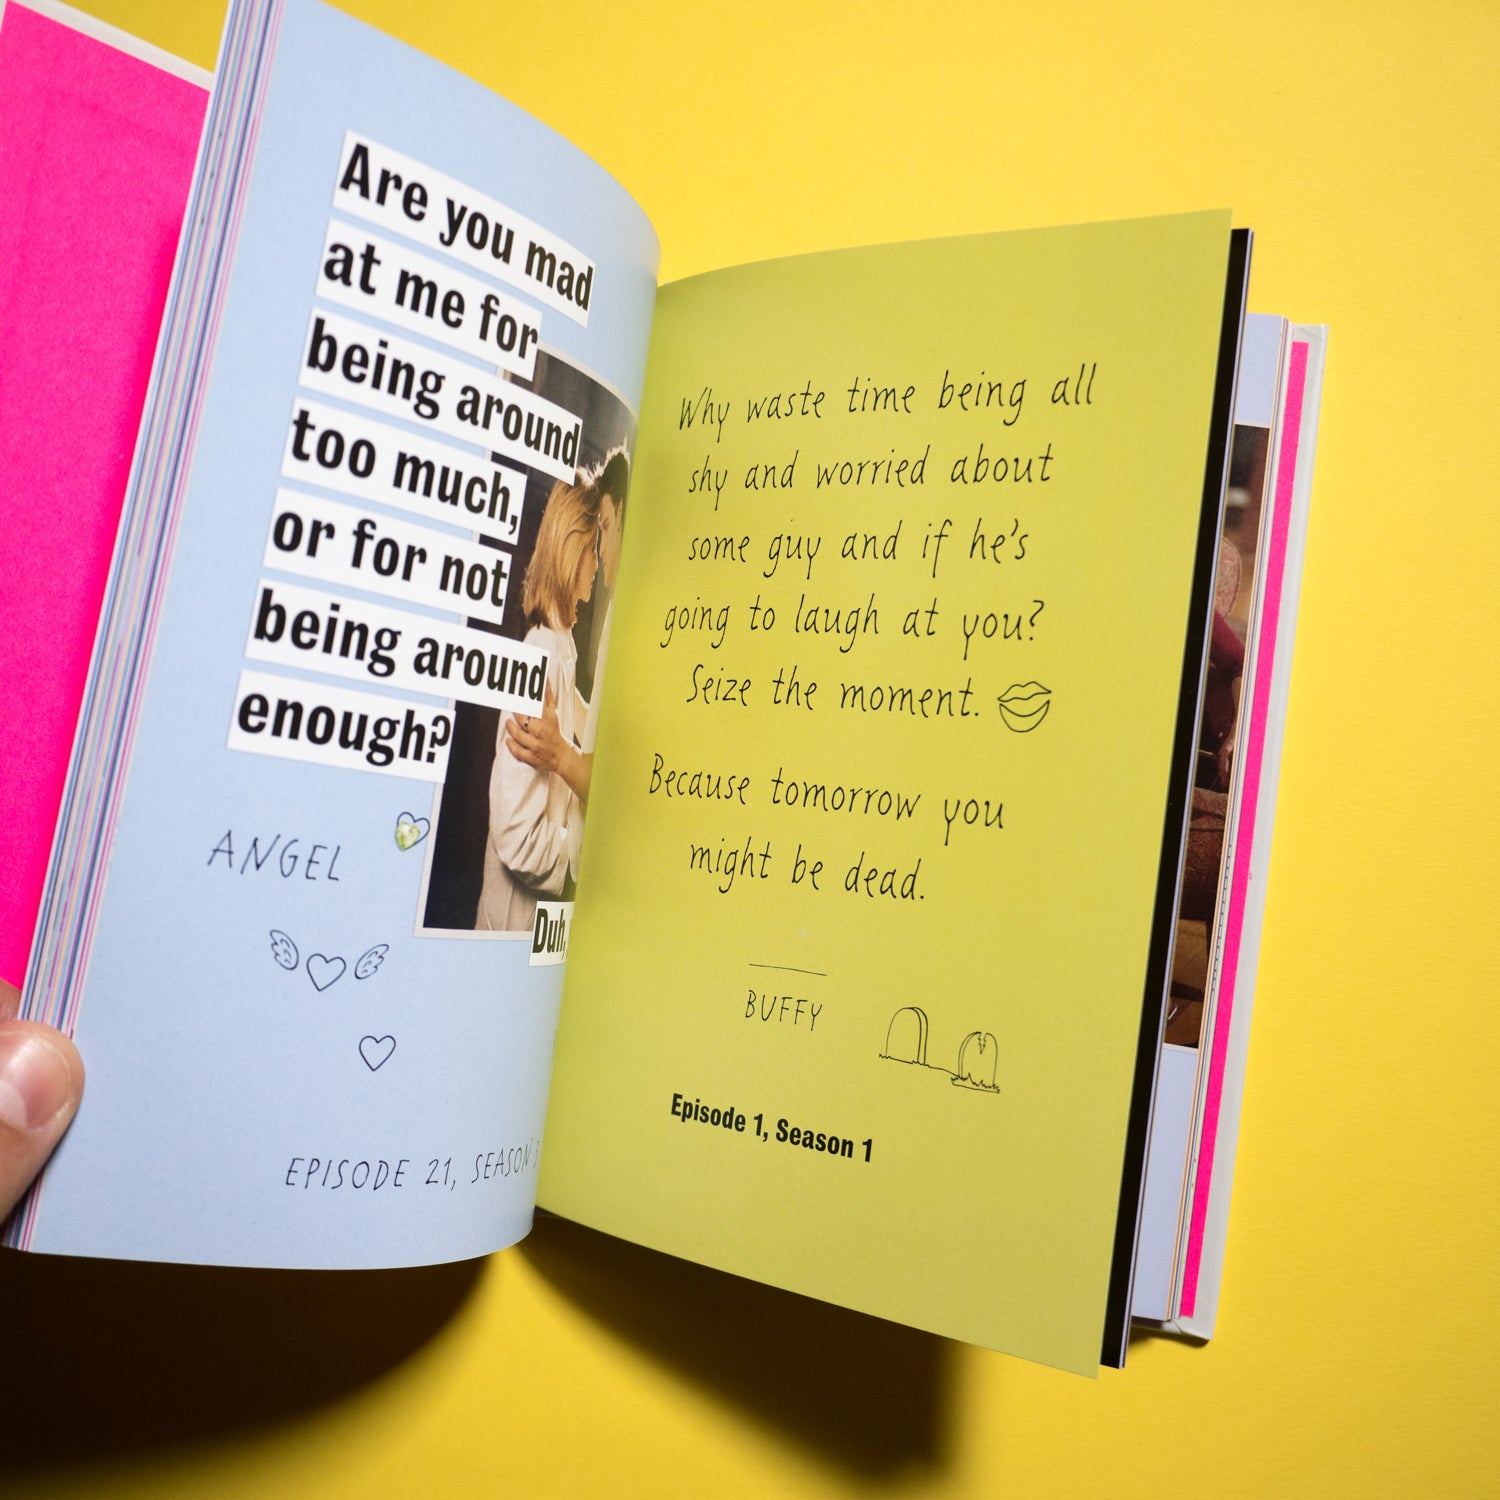 Are you mad
at me for
being around
too much,
or for not
being around
enough?
ANGEL
Duh,
EPISODE 21, SEASON
Why waste time being all
shy and worried about
some guy and if he's
going to laugh at you?
Seize the moment.
Because tomorrow you
might be dead.
BUFFY
Episode 1, Season 1